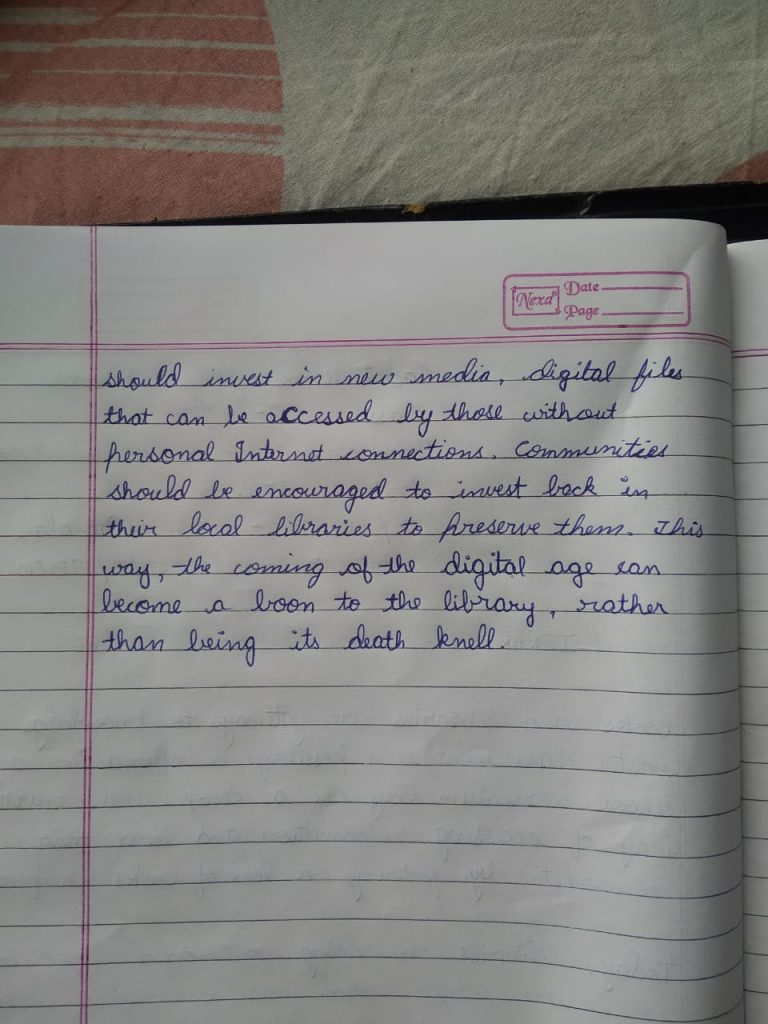 Nexa
Date
Page
should invest in new media, digital files
that can be accessed by those without
personal Internet connections. Communities
should be encouraged to invest back in
their local libraries to preserve them. This
way, the coming of the digital age can
become a boon to the library, rather
than being its death knell.